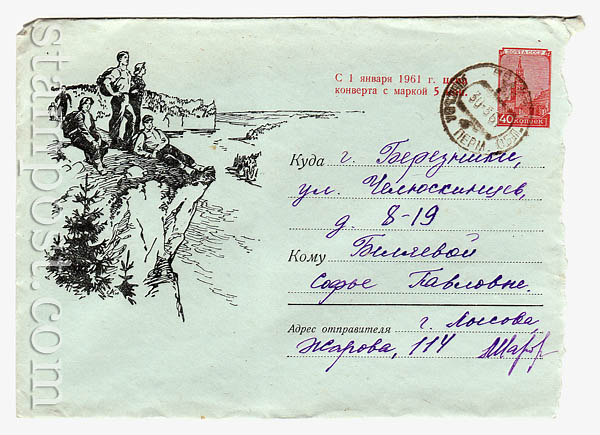 stampost.com
ПОЧТА СССР
40 КОПЕЕК
С 1 января 1961 г. цена
конверта с маркой 5 коп.
Куда г. Березники,
ул. Челюскинцев,
д. 8-19
Кому Биляевой
Софье Павловне.
Адрес отправителя г. Лысова,
Жарова, 114